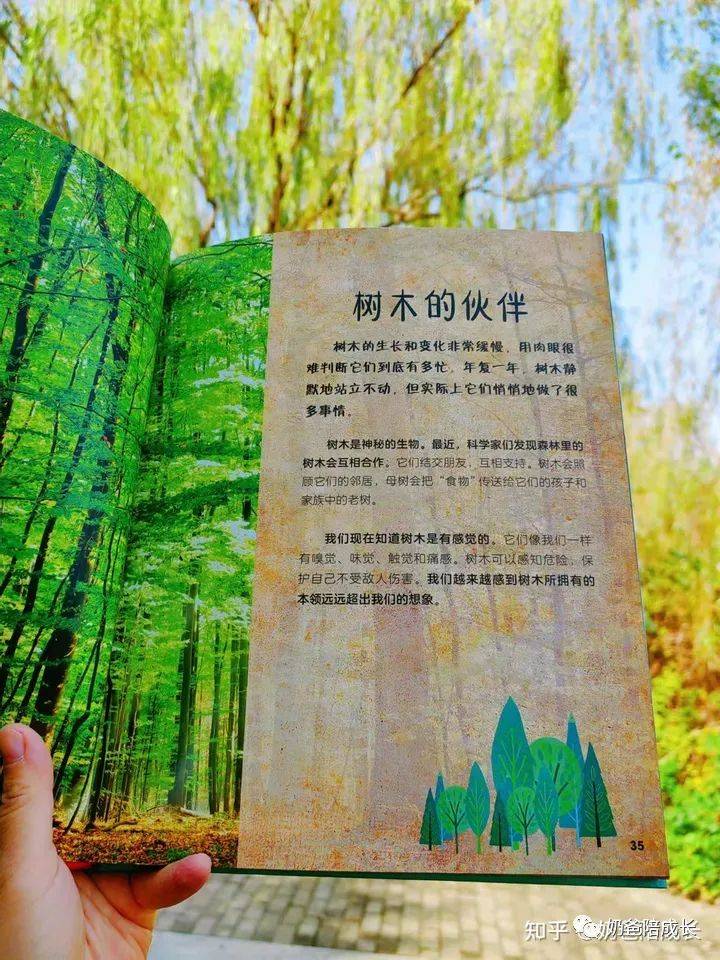 树木的伙伴
树木的生长和变化非常缓慢，用肉眼很
难判断它们到底有多忙。年复一年，树木静
默地站立不动，但实际上它们悄悄地做了很
多事情。
树木是神秘的生物。最近，科学家们发现森林里的
树木会互相合作。它们结交朋友，互相支持。树木会照
顾它们的邻居，母树会把“食物”传送给它们的孩子和
家族中的老树。
我们现在知道树木是有感觉的。它们像我们一样
有嗅觉、味觉、触觉和痛感。树木可以感知危险，保
护自己不受敌人伤害。我们越来越感到树木所拥有的
本领远远超出我们的想象。
35
知乎
奶爸陪成长